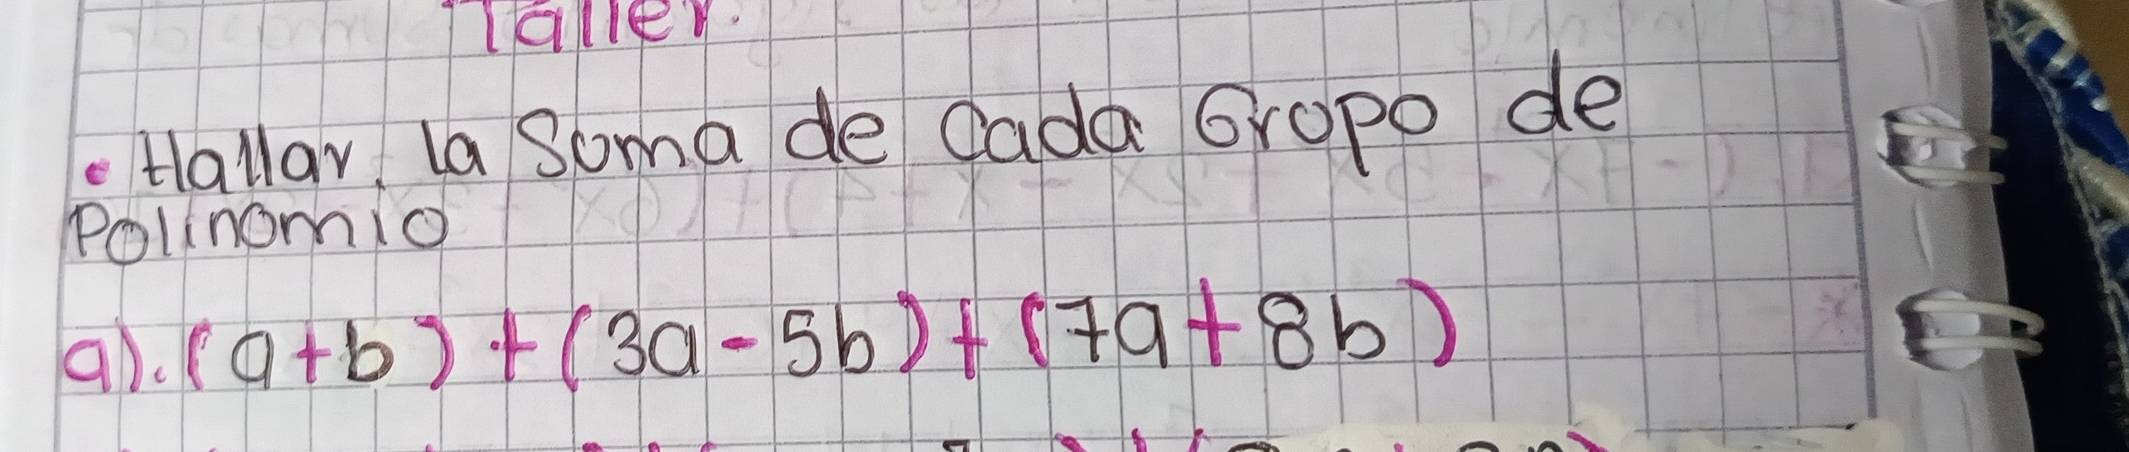 Taller.
• Hallar, la Suma de Cada Gropo de
Polinomio
a).(a+b)+(3a-5b)+(7a+8b)